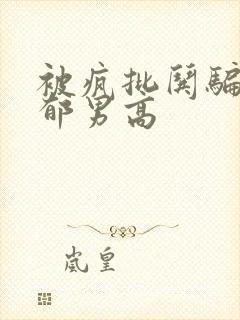 被疯批哭骗
郁男高
岚皇